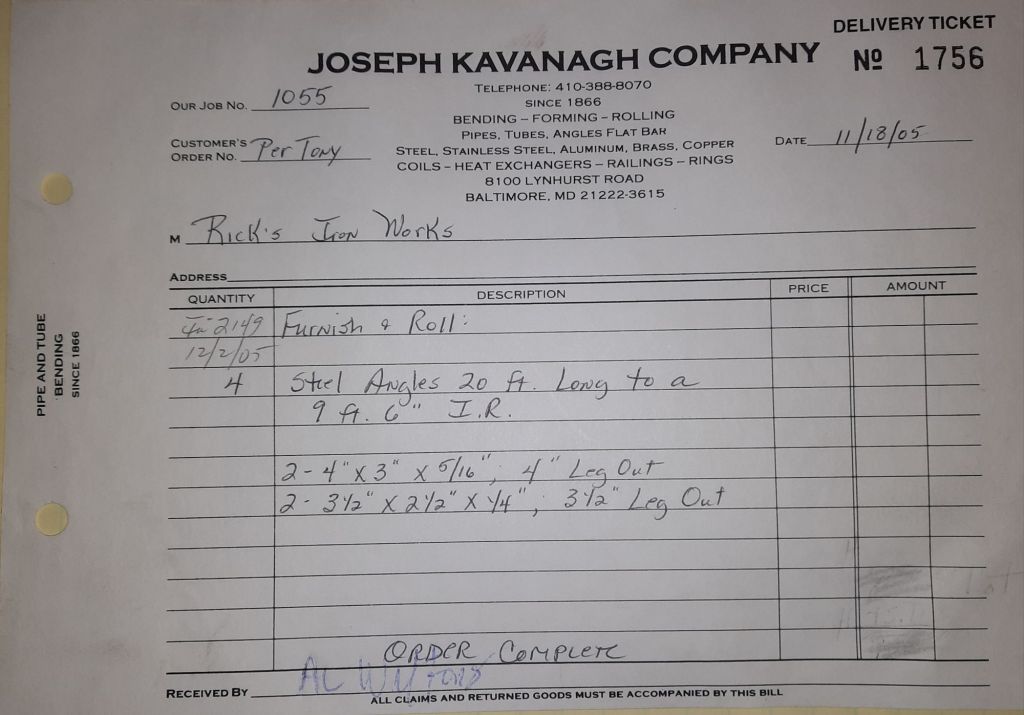 DELIVERY TICKET
JOSEPH KAVANAGH COMPANY
Nº 1756
TELEPHONE: 410-388-8070
SINCE 1866
BENDING – FORMING – ROLLING
PIPES, TUBES, ANGLES FLAT BAR
STEEL, STAINLESS STEEL, ALUMINUM, BRASS, COPPER
COILS – HEAT EXCHANGERS – RAILINGS – RINGS
8100 LYNHURST ROAD
BALTIMORE, MD 21222-3615
OUR JOB NO. 1055
CUSTOMER'S
ORDER NO. Per Tony
DATE 11/18/05
M Rick's Iron Works
ADDRESS
QUANTITY DESCRIPTION PRICE AMOUNT
2149 Furnish & Roll:
12/2/05
4 Steel Angles 20 ft. Long to a
9 ft. 6" I.R.
2 - 4" X 3" X 5/16", 4" Leg Out
2 - 3 1/2" X 2 1/2" X 1/4", 3 1/2" Leg Out
ORDER COMPLETE
RECEIVED BY AL
ALL CLAIMS AND RETURNED GOODS MUST BE ACCOMPANIED BY THIS BILL
PIPE AND TUBE
BENDING
SINCE 1866